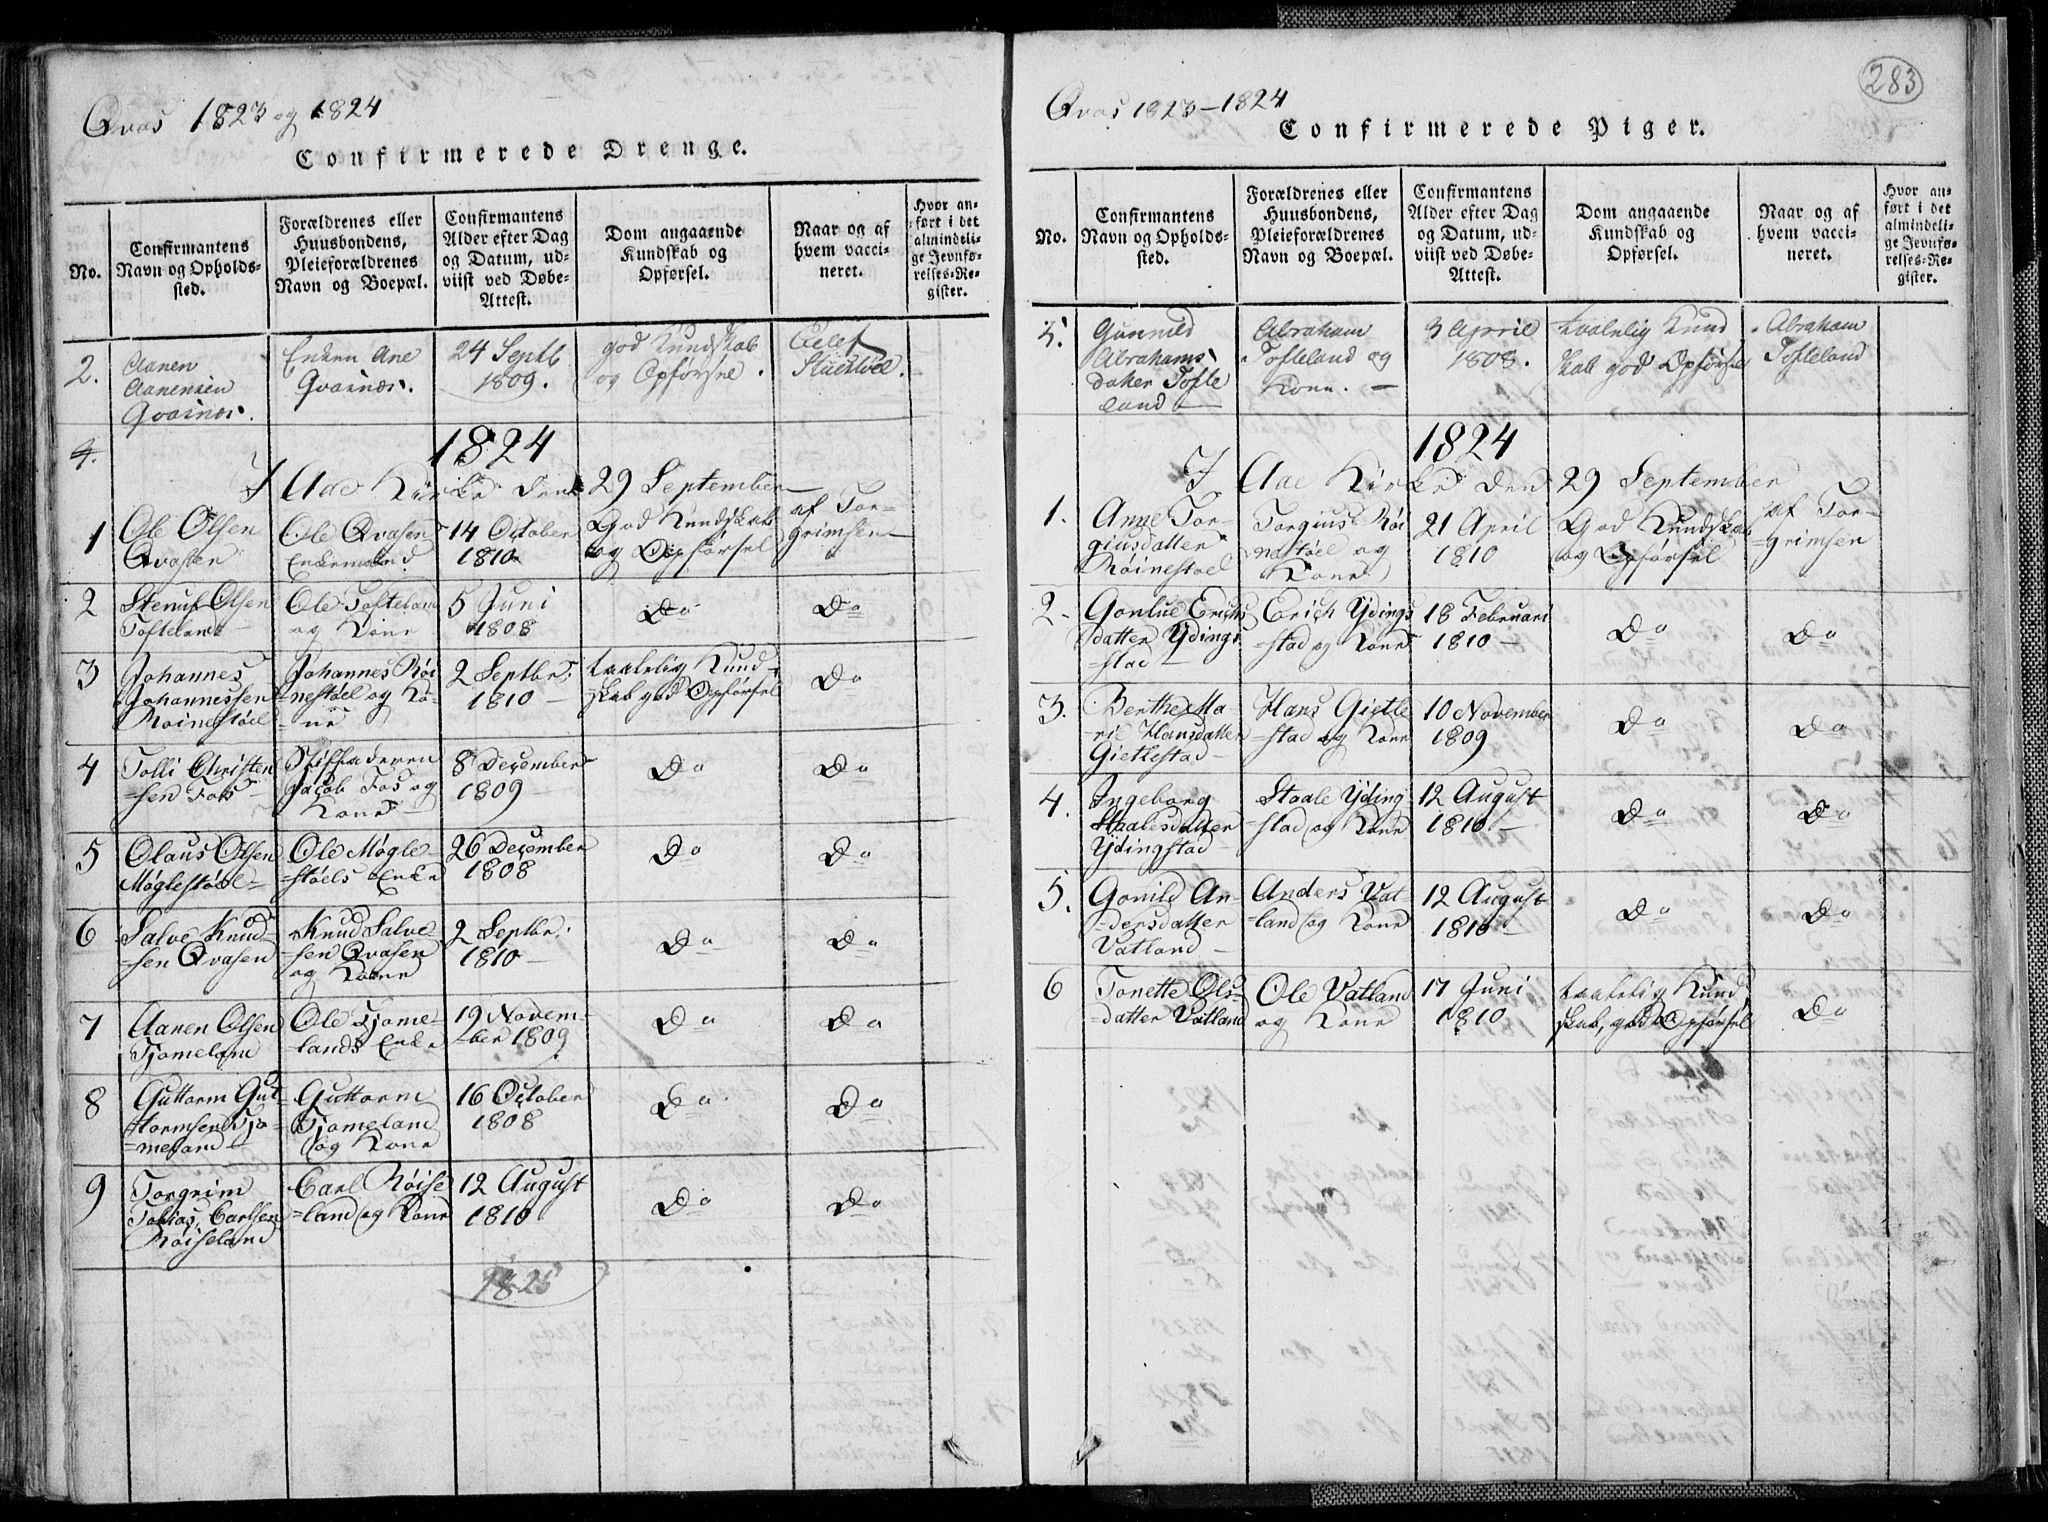 Qvas 1823 og 1824
Confirmerede Drenge.
No.
Confirmantens
Navn og Opholds-
sted.
Forældrenes eller
Huusbondens,
Pleieforældrenes
Navn og Boepæl.
Confirmantens
Alder efter Dag
og Datum, ud-
viist ved Døbe-
Attest.
Dom angaaende
Kundskab og
Opførsel.
Naar og af
hvem vacci-
neret.
Hvor an-
ført i det
almindeli-
ge Jevnfø-
relses-Re-
gister.
2.
Aanen
Aanensen
Qvasnæs.
Enken Ane
Qvasnæs.
24 Septb
1809.
god Kundskab
og Opførsel.
Eelef
4.
1824
I Aae Kirke den 29 September
1
Ole Olsen
Qvasen
Ole Qvasen
Enkemand
14 October
1810
God Kundskab
og Opførsel
af Tor-
grimsen
2
Stenuf Olsen
Tofteland
Ole Tofteland
og Kone
5 Juni
1808
Do
Do
3
Johannes
Johannessen
Røinestøel
Johannes Røi
-nestøel og Ko-
-ne
2 Septbr.
1810
taalelig Kund-
skab god Opførsel
Do
4
Tolli Christen
-sen Fos
Stiffaderen
Jacob Fos og
Kone
8 December
1809
Do
Do
5
Olaus Olsen
Møglestøel
Ole Møgle-
støels Enke
26 December
1808
Do
Do
6
Salve Knud-
-sen Qvasen
Knud Salve-
-sen Qvasen
og Kone
2 Septbr.
1810
Do
Do
7
Aanen Olsen
Tjomeland
Ole Tjome-
-lands Enke
19 Novem-
-ber 1809
Do
Do
8
Guttorm Gut-
-tormsen Tjo-
-meland
Guttorm
Tjomeland
og Kone
16 October
1808
Do
Do
9
Torgrim
Tobias Carlsen
Røiseland
Carl Røise
-land og Kone
12 August
1810
Do
Do
1825
283
Qvas 1823-1824
Confirmerede Piger.
No.
Confirmantens
Navn og Opholds-
sted.
Forældrenes eller
Huusbondens,
Pleieforældrenes
Navn og Boepæl.
Confirmantens
Alder efter Dag
og Datum, ud-
viist ved Døbe-
Attest.
Dom angaaende
Kundskab og
Opførsel.
Naar og af
hvem vacci-
neret.
Hvor an-
ført i det
almindeli-
ge Jevnfø-
relses-Re-
gister.
Gunnild
Abrahams
datter Tofte
land
Abraham
Tofteland og
Kone.
3 April
1808.
taalelig Kund
skab god Opførsel
Abraham
Tofteland
1824
I Aae Kirke den 29 September
1.
Anne Tor-
giusdatter
Røinestøel
Torgius Røi
nestøel og
Kone
21 April
1810
God Kundskab
og Opførsel
af Tor-
-grimsen
2.
Gonlue Erichs
datter Ydings
-stad
Erich Ydings
-stad og Kone
18 Februari
1810
Do
Do
3.
Berthe Ma-
-rie Hansdatter
Gietlestad
Hans Gietle
-stad og Kone
10 November
1809
Do
Do
4.
Ingeborg
Staalesdatter
Ydingstad
Staale Yding
-stad og Kone
12 August
1810
Do
Do
5.
Gonild An-
-dersdatter
Vatland
Anders Vat-
-land og Kone
12 August
1810
Do
Do
6
Tonette Ols-
-datter Vatland
Ole Vatland
og Kone
17 Juni
1810
taalelig Kund-
skab, god Opførsel
Do